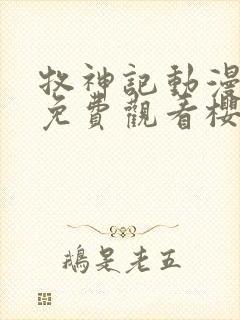 牧神記動漫
免費觀看櫻
鵝是老五